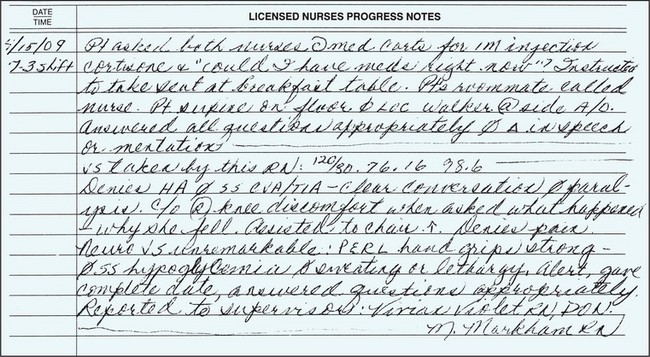 DATE
TIME
LICENSED NURSES PROGRESS NOTES
4/15/09 Pt asked both nurses @ med carts for IM injection
7-3 shift cortisone & "could I have meds right now"? Instructed
to take seat at breakfast table. Pt's roommate called
nurse. Pt supine on floor Ø LOC walker @ side A/O.
Answered all questions appropriately Ø Δ in speech
or mentation
VS taken by this RN: 120/80. 76. 16 98.6
Denies HA Ø SS CVA/TIA - Clear conversation Ø paral-
ysis. C/O Ⓡ knee discomfort when asked what happened
- why she fell. Assisted to chair ↑. Denies pain
Neuro VS unremarkable: PERL hand grips strong -
Ø SS hypoglycemia Ø sweating or lethargy. Alert, gave
complete date, answered questions appropriately.
Reported to supervisor: Vivian Violet RN DON.
M. Markham RN